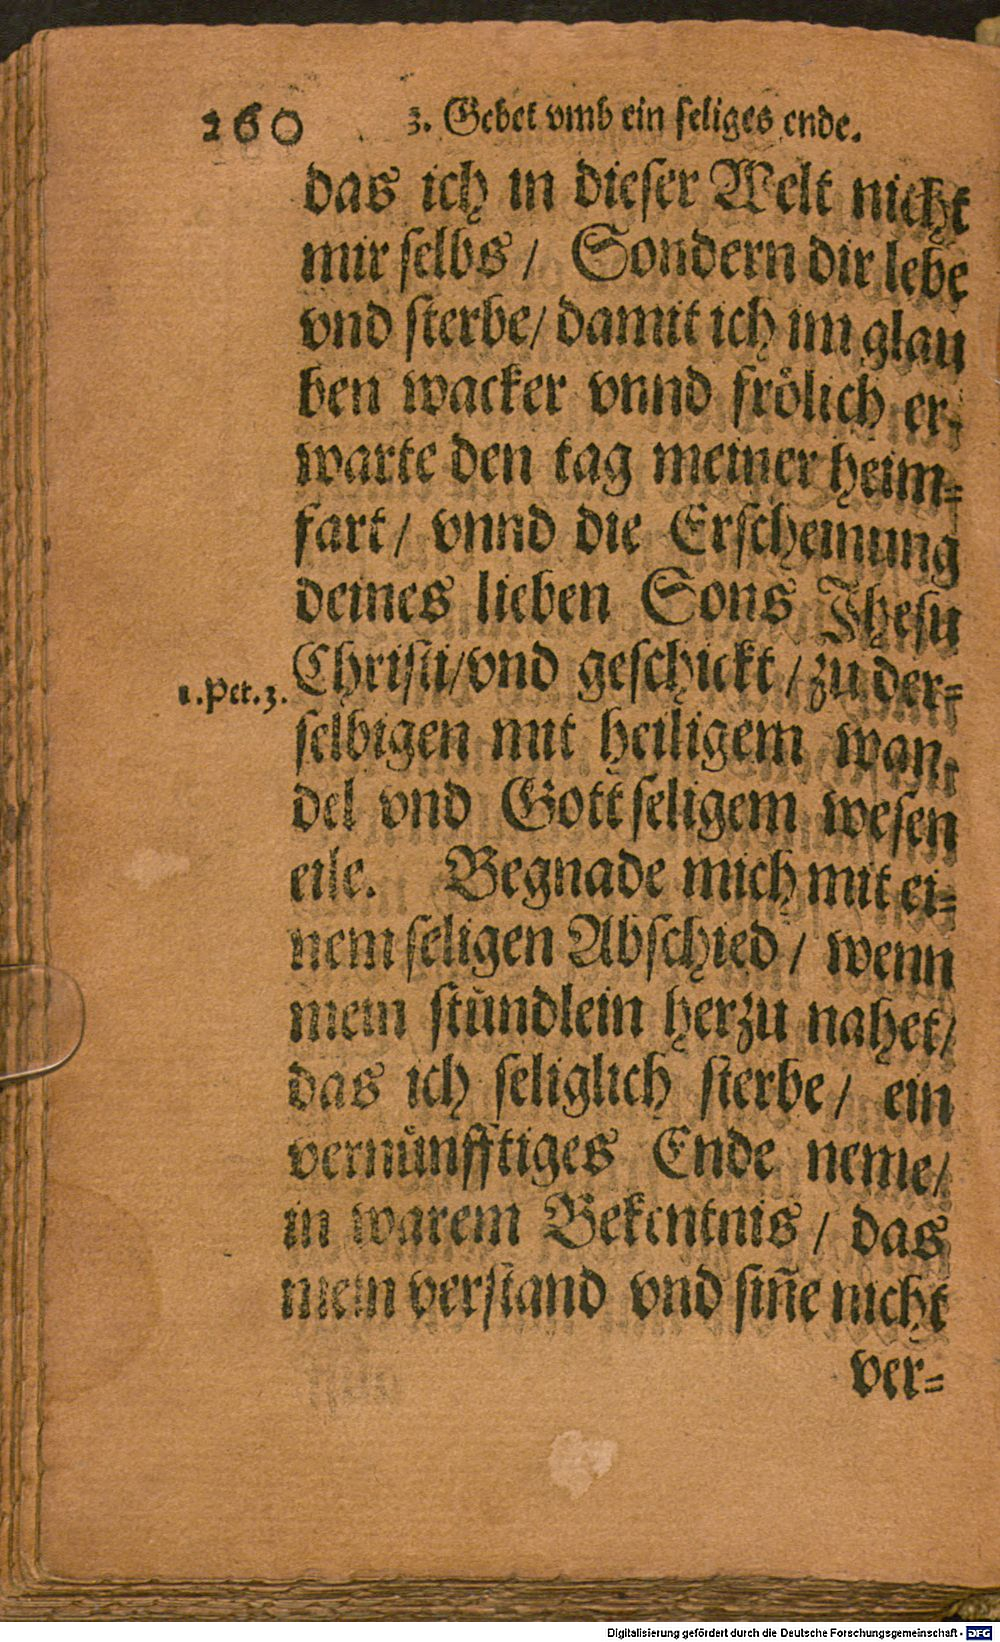 260 3. Gebet vmb ein seliges ende.
das ich in dieser Welt nicht
mir selbs / Sondern dir lebe
vnd sterbe / damit ich im glau
ben wacker vnnd frölich er-
warte den tag meiner heim-
fart / vnnd die Erscheinung
deines lieben Sons Jhesu
Christi / vnd geschickt / zu der-
1. Pet. 3.
selbigen mit heiligem wan-
del vnd Gottseligem wesen
eile. Begnade mich mit ei-
nem seligen Abschied / wenn
mein stündlein herzu nahet /
das ich seliglich sterbe / ein
vernünfftiges Ende neme /
in warem Bekentnis / das
mein verstand vnd siñe nicht
ver-
Digitalisierung gefördert durch die Deutsche Forschungsgemeinschaft - DFG